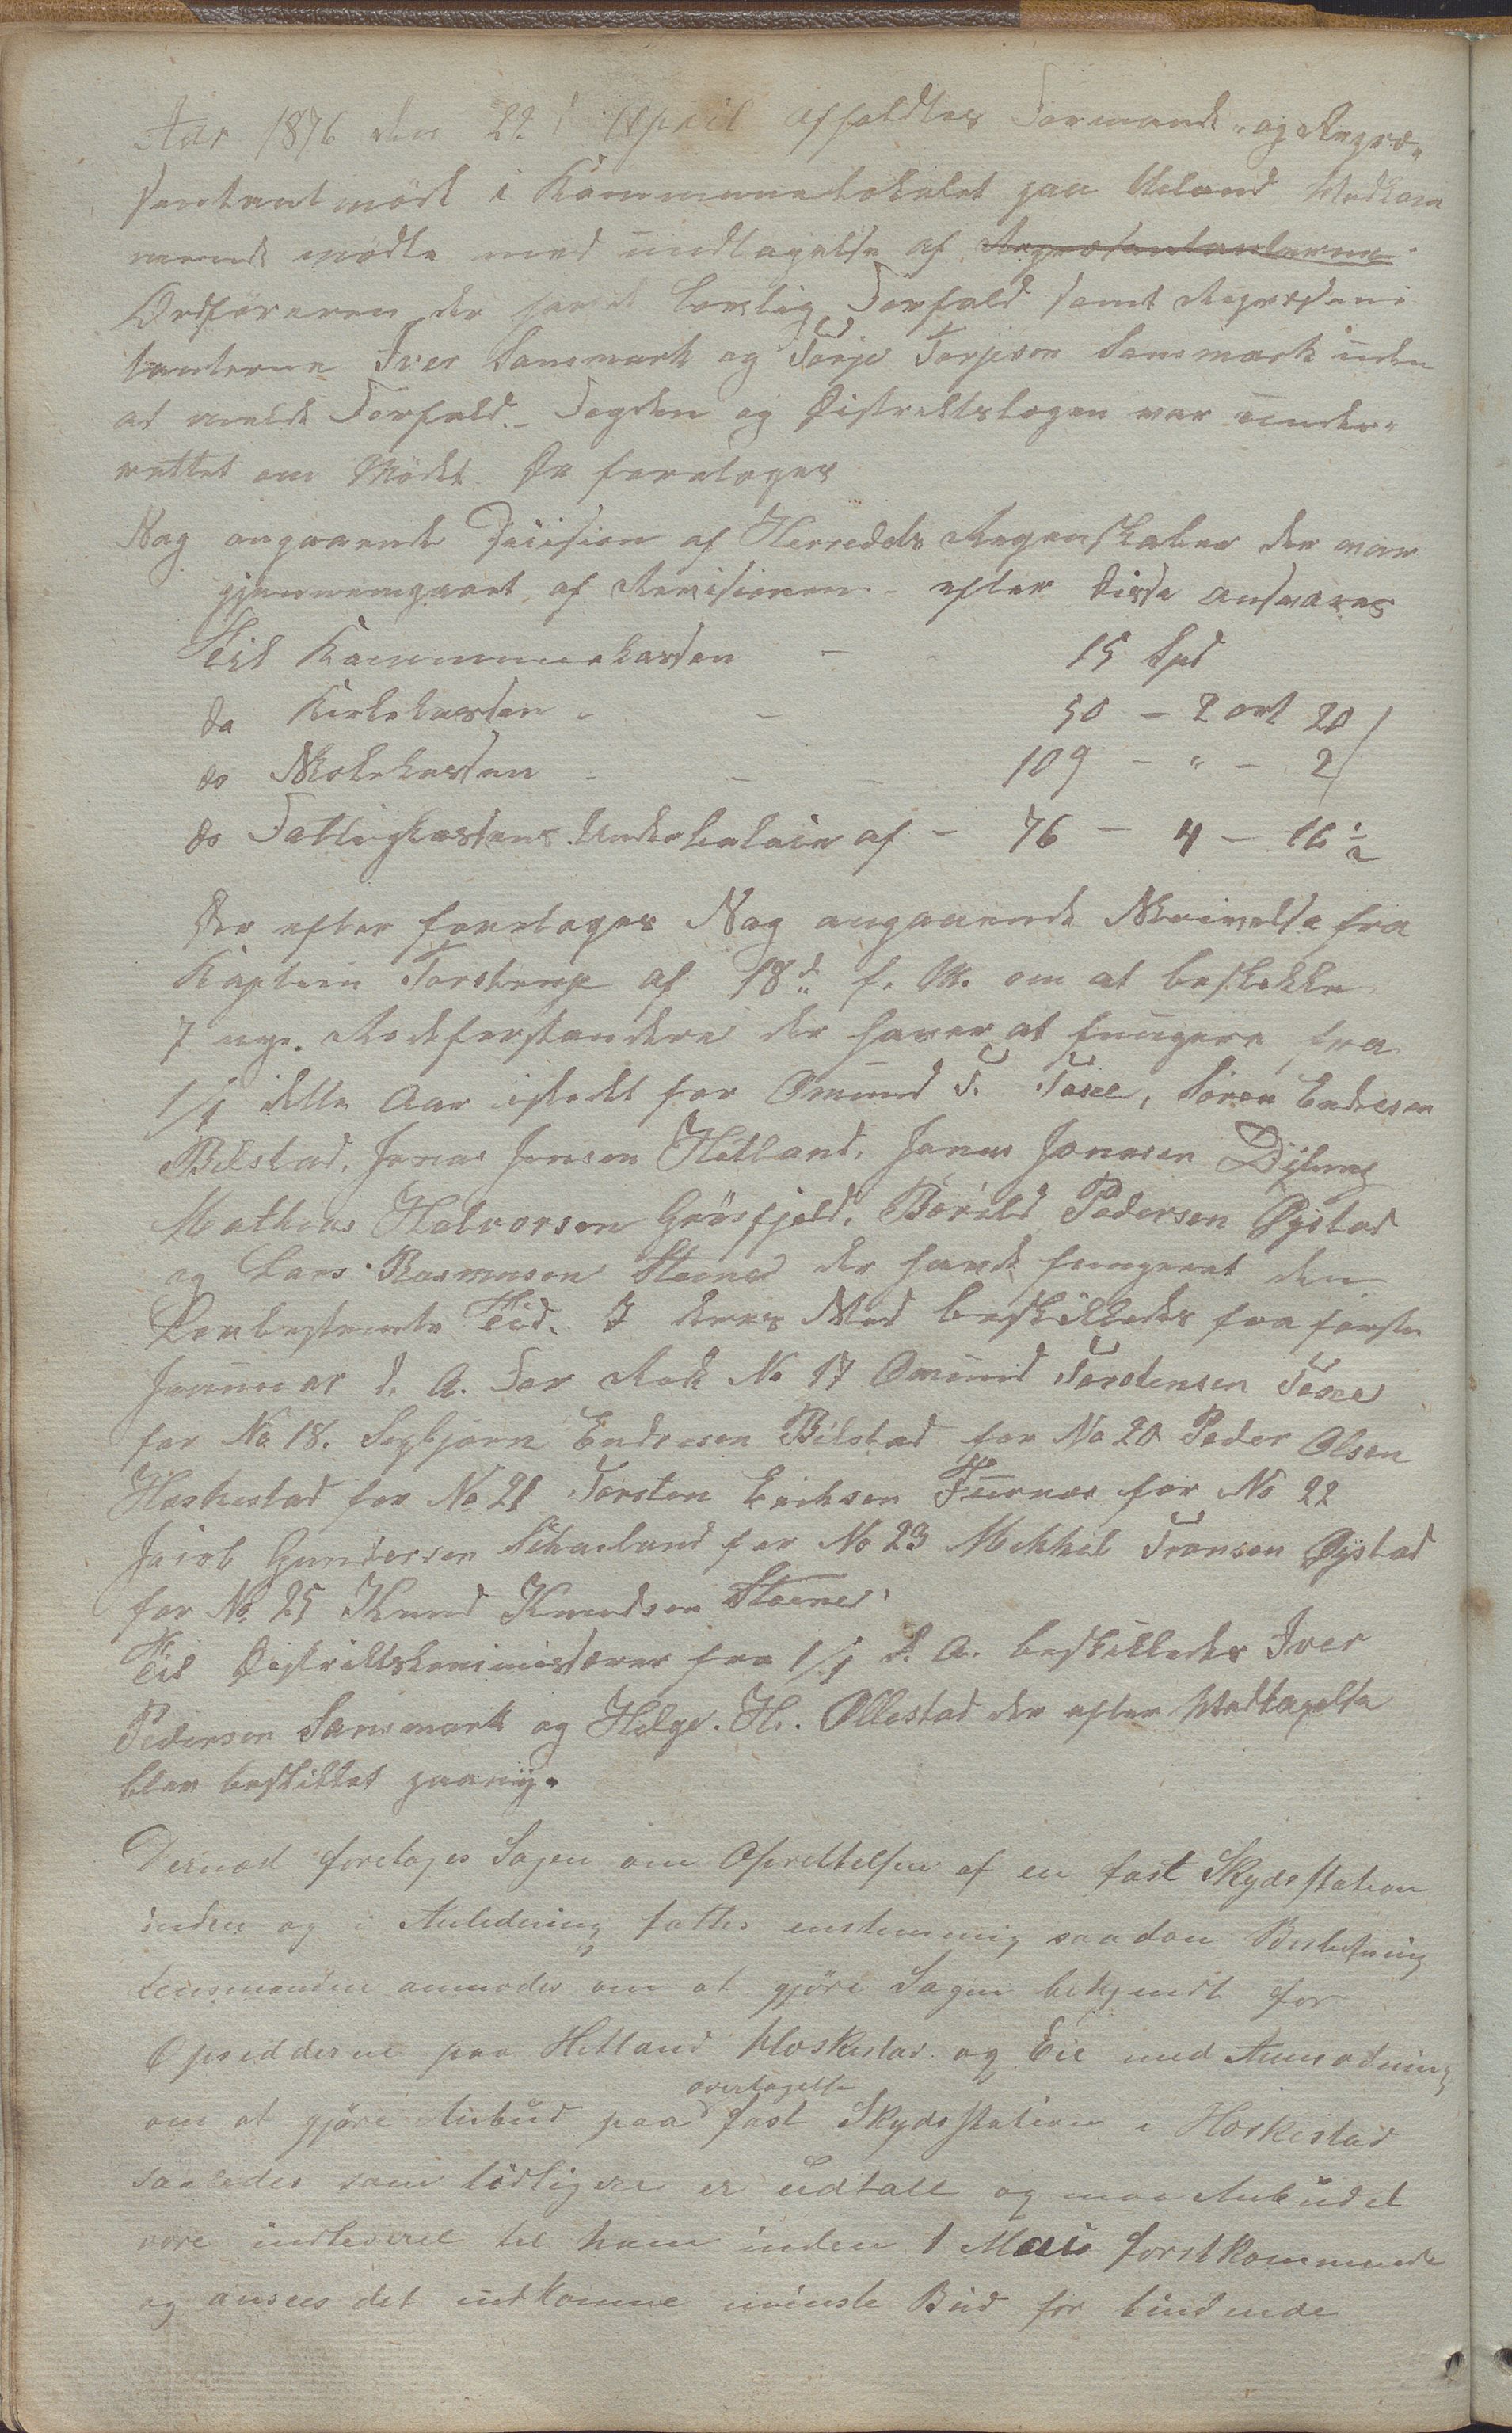 Aar 1876 den 22 d April afholdtes Formands- og Repræ-
sentantmöde i Kommunelokalet paa Ueland Vedkom
mende mödte med undtagelse af Repræsentanterne
Ordföreren der havde lovlig Forfald samt Repræsen-
tanterne Iver Sansmark og Torje Torjesen Sansmark uden
at melde Forfald. – Fogden og Distriktslægen var under-
rettet om Mödet. Da foretoges
Sag angaaende Decision af Herredets Regnskaber der var
gjennemgaaet af Revisionen. efter disse ansvares
Til Kommunekassen – - 15 Spd
do Kirkekassen - – 50 – 2 ort 20 /
do Skolekassen - – 109 – " – 2 /
do Fattigkassens Underbalance af – 76 – 4 – 16 ½
Der efter foretoges Sag angaaende Skrivelse fra
Kaptein Torstrup af 18 d f. M. om at beskikke
7 nye Rodeforstandere der haver at fungere fra
1/1 dette Aar istedet for Omund T. Tøxe, Sören Endresen
Bilstad, Jonas Jonsen Hetland, Jonas Jonasen Dyling
Mathias Halvorsen Grösfjeld, Bårild Pedersen Øystad
og Lars Rasmusen Steene der havde fungeret den
Lovbestemte Tid. I deres Sted beskikkedes fra förste
Januar d. A. For Rode No 17 Omund Torstensen Tøxe
for No 18. Segbjørn Endresen Bilstad for No 20 Peder Olsen
Haskestad for No 21 Torsten Eriksen Furnes for No 22
Jacob Gundersen Skaarland for No 23 Mekkel Tronsen Øystad
for No 25 Knud Knudsen Steene.
Til Distriktskommissærer fra 1/1 d. A. beskikkedes Iver
Pedersen Sansmark og Helge. H. Ollestad der efter Vedtagelse
blev beskikket paany.
Dernæst foretoges Sagen om Oprettelsen af en fast Skydsstation
inden og i Anledning fattes enstemmig saadan Beslutning
Lensmanden anmodes om at gjöre Sagen bekjendt for
Opsidderne paa Hetland Hoskestad og Eie med Anmodning
om at gjöre Anbud paa overtagelse fast Skydsstation i Hoskestad
saaledes som tidligere er udtalt og maa Anbudet
være indleveret til ham inden 1 Mai förstkommende
og ansees det indkomne mindste Bud for bindende